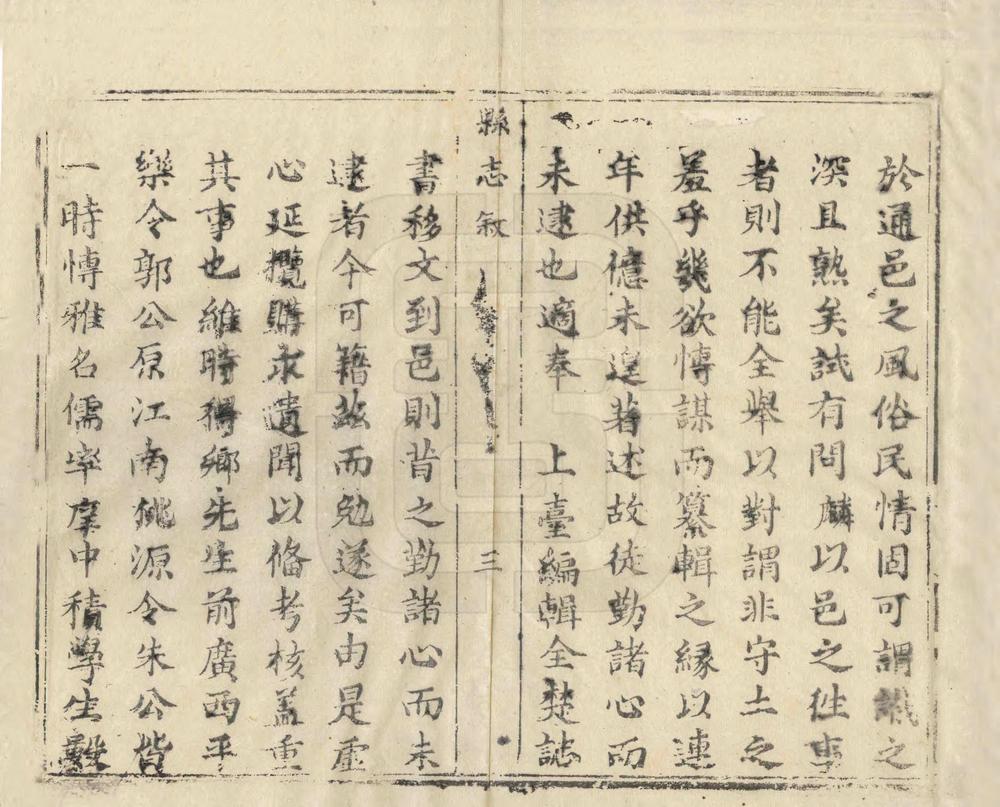 於通邑之風俗民情固可謂識之
深且熟矣試有問麟以邑之徃事
者則不能全舉以對謂非守土之
羞乎幾欲愽謀而纂輯之緣以連
年供億未遑著述故徒勤諸心而
未逮也適奉　上臺編輯全楚誌
縣志敘　三
書移文到邑則昔之勤諸心而未
逮者今可籍茲而勉遂矣由是虛
心延攬購求遺聞以俻考核盖重
其事也維時得鄉先生前廣西平
樂令郭公原江南桃源令朱公偕
一時愽雅名儒率庠中積學生